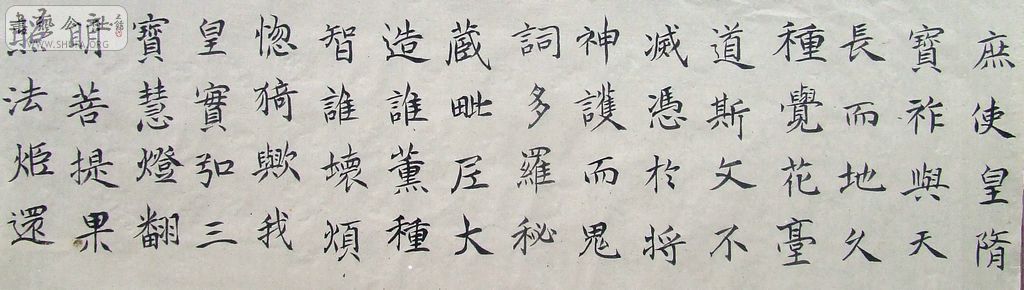 庶使皇隋
寶祚與天
長而地久
種覺花臺
道斯文不
滅憑於將
神護而鬼
詞多羅秘
藏毗尼大
造誰薰種
智誰壞煩
惚猗歟我
皇實弘三
寶慧燈翻
菩提果
法炬還
書藝公社
WWW.SHUFA.ORG